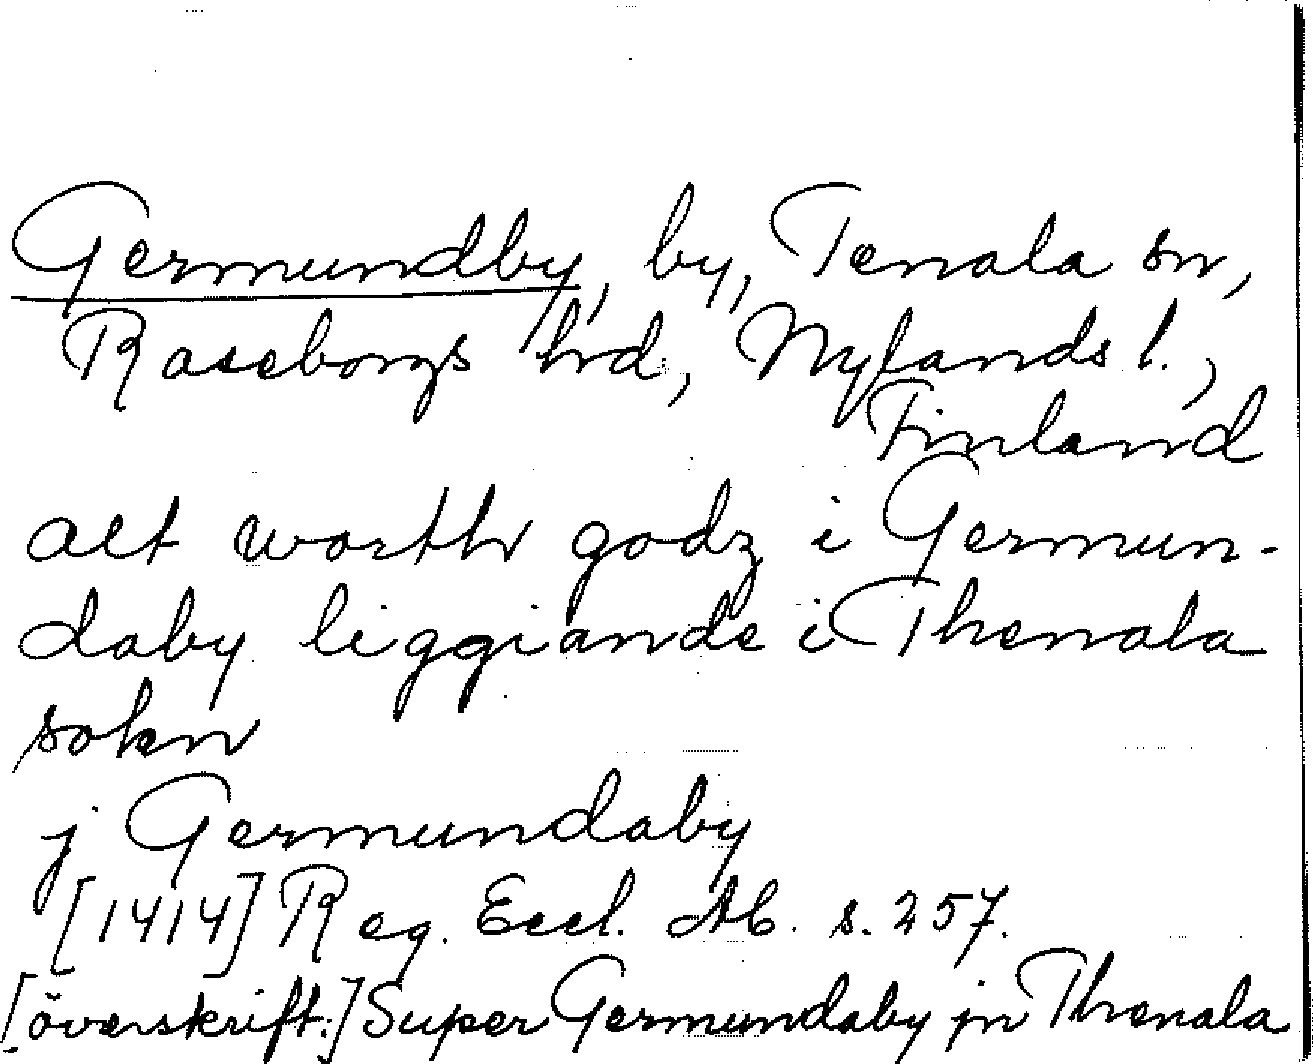 Germundby, by, Tenala sn,
Raseborgs hrd, Nylands l.,
Finland
alt worth godz i Germun-
daby liggiande i Thenala
sokn
j Germundaby
[1414] Reg. Eccl. Ab. s. 257.
[överskrift:] Super Germundaby jn Thenala